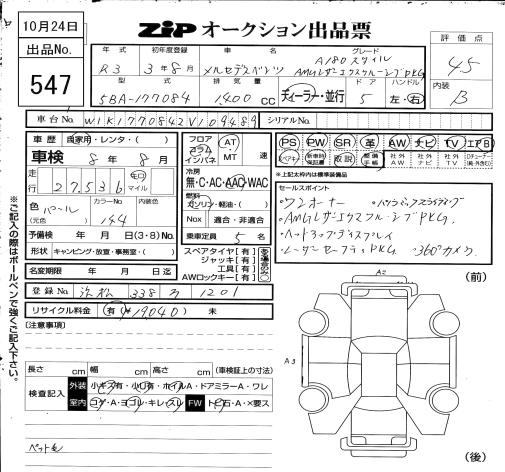 10月24日
出品No.
547
ZIP オークション出品票
評価点
4.5
内装
B
年式 初年度登録 車名 グレード
R3 3年8月 メルセデスベンツ A180スタイル
AMGレザーエクスクルーシブPKG
型式 排気量 ドア ハンドル
5BA-177084 1400 cc ディーラー・並行 5 左・右
車台No. W1K1770842V109489
シリアルNo.
車歴 自家用・レンタ・( )
車検 8年8月
走行 27,536 キロ マイル
色 パール
(元色)
カラーNo 144
内装色
予備検 年 月 日(3・8)No.
形状 キャンピング・放宣・事務室・( )
名変期限 年 月 日迄
フロア コラム インパネ
AT MT 速
冷房
無・C・AC・AAC・WAC
燃料
ガソリン・軽油・( )
Nox 適合・非適合
乗車定員 5 名
スペアタイヤ[有]
ジャッキ[有]
工具[有]
AWロックキー[有]
PS PW SR 革 AW ナビ TV エアB
スペアキー 新車時保証書 取説 整備手帳 社外AW 社外ナビ 社外TV
※上記太枠内は標準装備品
セールスポイント
・ワンオーナー
・AMGレザーエクスクルーシブPKG.
・ヘッドアップディスプレイ
・レーダーセーフティPKG. ・360°カメラ.
登録No. 浜松 338 1201
リサイクル料金 (有 ¥19,040) 未
(注意事項)
長さ cm 幅 cm 高さ cm (車検証上の寸法)
検査記入
外装 小キズ有・小凹有・ホイルA・ドアミラーA・ワレ
室内 コゲ・A・ヨゴレ・キレ・スレ FW トビ石・A・×要ス
ペット毛
(前)
A2
A3
(後)
◎ご記入の際はボールペンで強くご記入下さい。